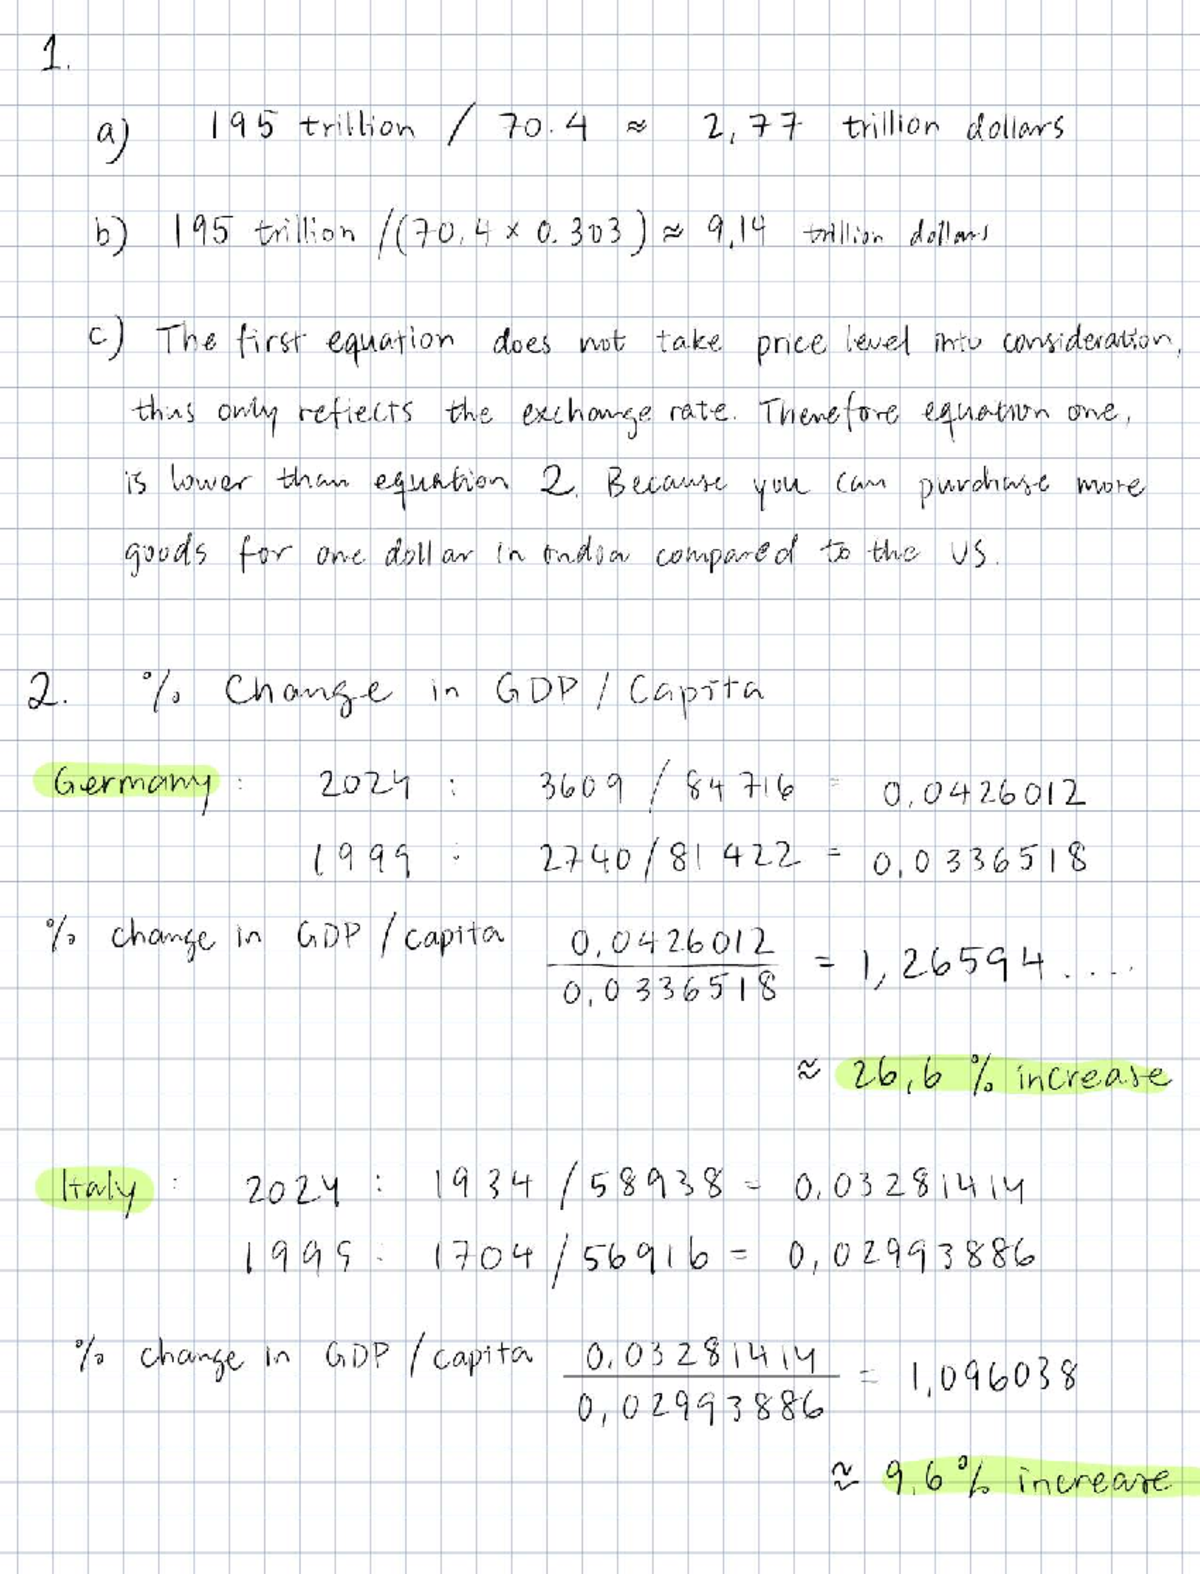 1.
a) 195 trillion / 70.4 ≈ 2,77 trillion dollars
b) 195 trillion /(70,4 × 0.303) ≈ 9,14 trillion dollars
c) The first equation does not take price level into consideration,
thus only reflects the exchange rate. Therefore equation one,
is lower than equation 2. Because you can purchase more
goods for one dollar in india compared to the US.
2. % Change in GDP / Capita
Germany : 2024 : 3609 / 84 716 = 0,0426012
1999 : 2740 / 81 422 = 0,0336518
% change in GDP / capita 0,0426012
0,0336518 = 1,26594....
≈ 26,6 % increase
Italy : 2024 : 1934 / 58938 = 0,03281414
1999 : 1704 / 56916 = 0,02993886
% change in GDP / capita 0,03281414
0,02993886 = 1,096038
≈ 9,6 % increase